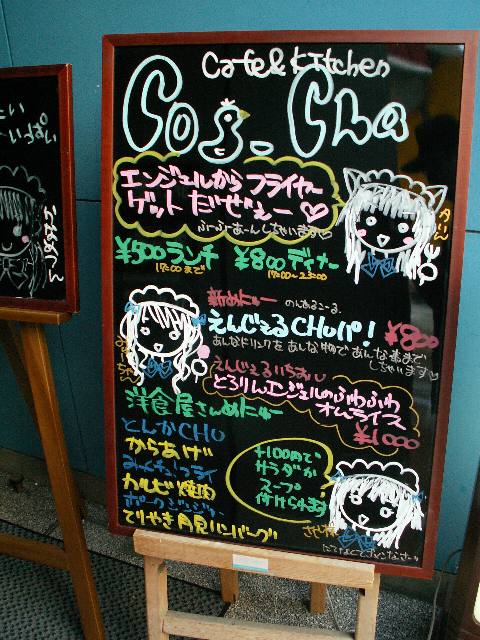 いっぱい
Cafe & Kitchen
Cos_Cha
エンジェルから フライヤー
ゲット だぜぇー♡
ふーふーあーんしちゃいます♡
¥500ランチ
17:00まで
¥800ディナー
17:00〜23:00
新めにゅー
えんじぇるCHUパ!
¥800
あんなドリンクを あんな物で あんな事まで
しちゃいます♡
えんじぇるいちおし
とろりんエンジェルのふわふわ
オムライス
¥1000
洋食屋さんめにゅー
とんかCHU
からあげ
カルビ焼肉
てりやき月見ハンバーグ
+100円で
サラダか
スープ
付けられます